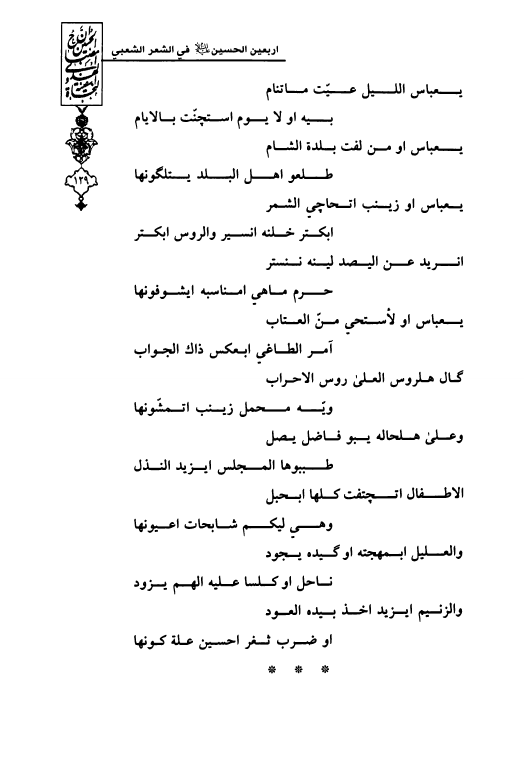 اربعين الحسين عليه السلام في الشعر الشعبي
١٢٩
يـعباس اللـيل عـيّت مـاتنام
بـيه او لا يـوم استچنّت بـالايام
يـعباس او مـن لفت بـلدة الشـام
طـلعو اهـل البـلد يـتلگونها
يـعباس او زيـنب اتـحاچي الشـمر
ابكـتر خـلنه انسـير والروس ابكـتر
انـريد عـن اليـصد ليـنه نـنستر
حـرم مـاهي امـناسبه ايشـوفونها
يـعباس او لأسـتحي مـنّ العـتاب
آمـر الطـاغي ابـعكس ذاك الجـواب
گـال هـلروس العـلىٰ روس الاحـراب
ويّـه مـحمل زيـنب اتـمشّونها
وعـلىٰ هـلحاله يـبو فـاضل يـصل
طـببوها المـجلس ايـزيد النـذل
الاطـفال اتـچتفت كـلها ابـحبل
وهـي ليكـم شـابحات اعـيونها
والعـليل ابـمهجته او گـيده يـجود
نـاحل او كـلسا عـليه الهـم يـزود
والزنـيم ايـزيد اخـذ بـيده العـود
او ضـرب ثـغر احسـين علة كـونها
* * *